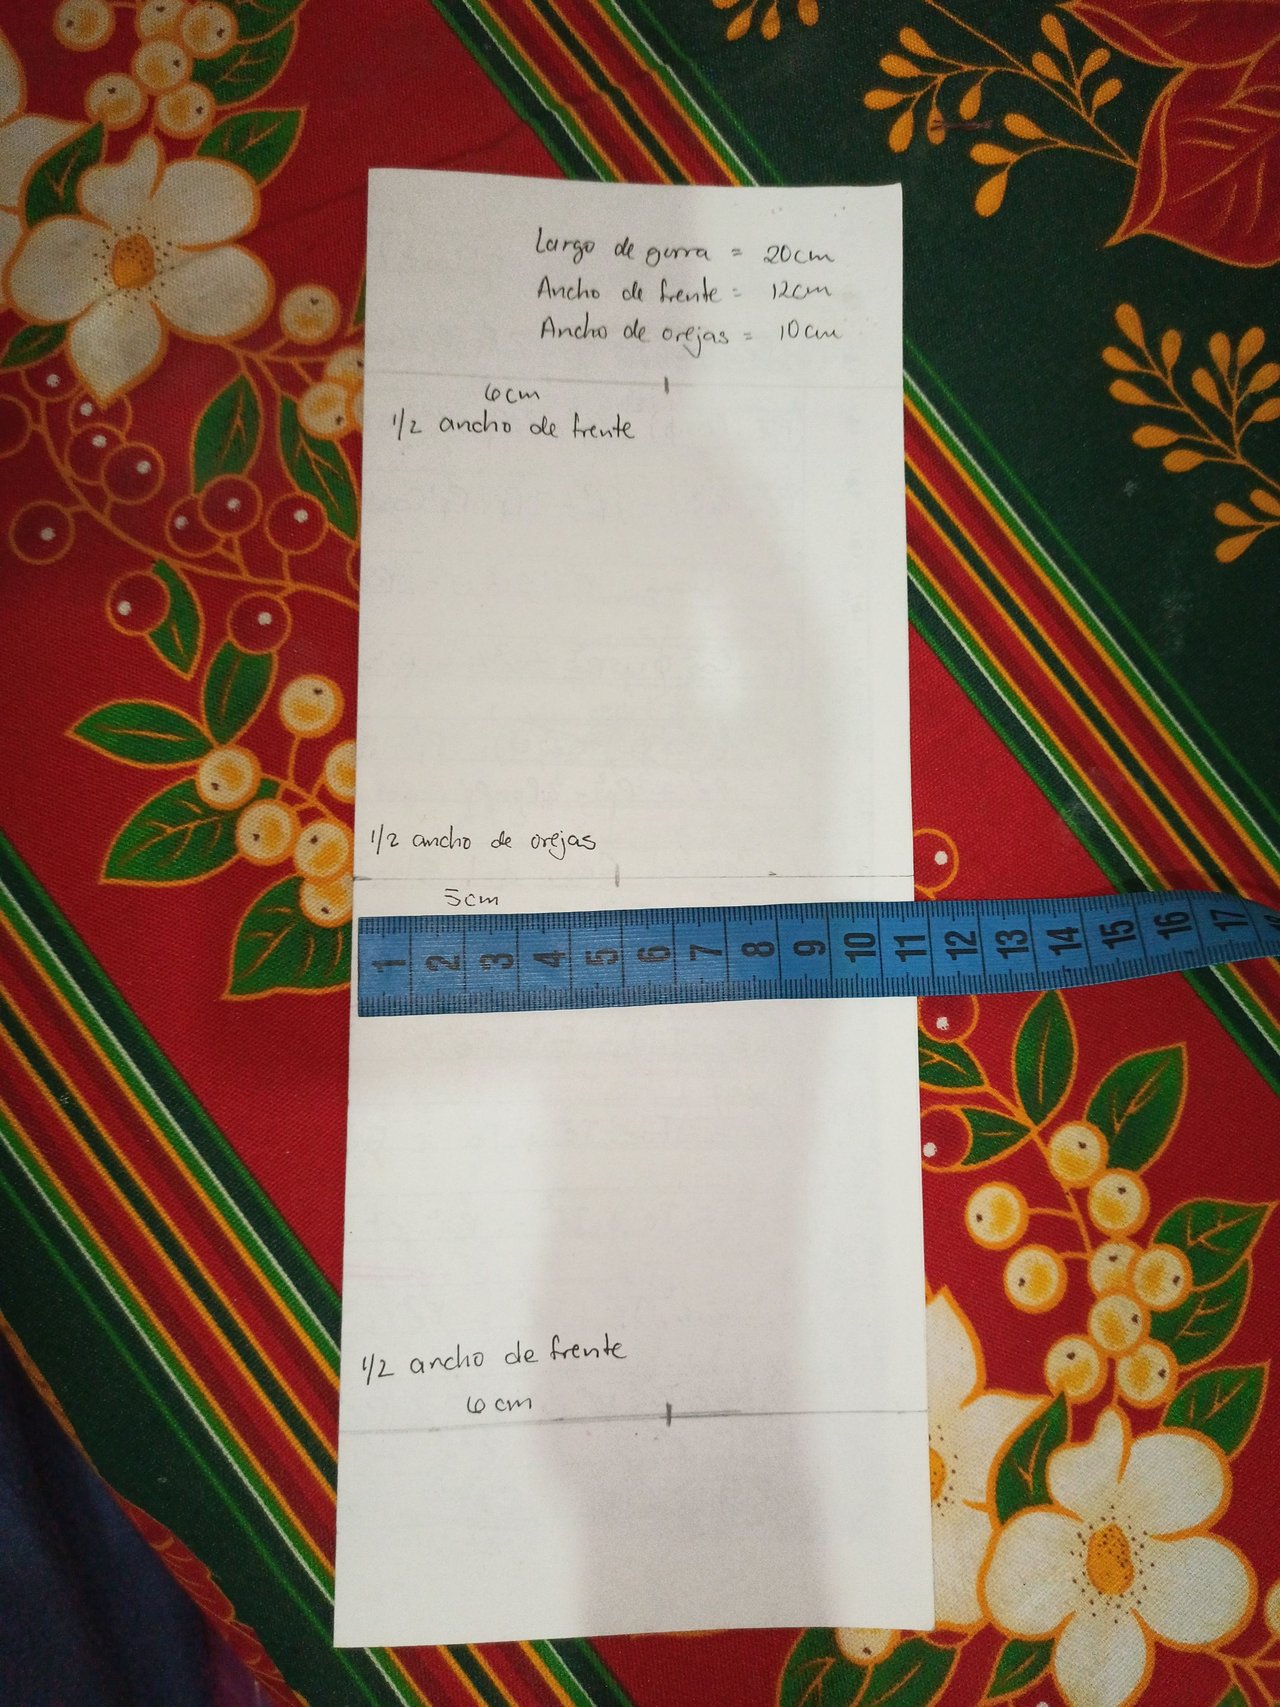 Largo de gorra = 20cm
Ancho de frente = 12cm
Ancho de orejas = 10cm
6cm
1/2 ancho de frente
1/2 ancho de orejas
5cm
1 2 3 4 5 6 7 8 9 10 11 12 13 14 15 16 17
1/2 ancho de frente
6 cm